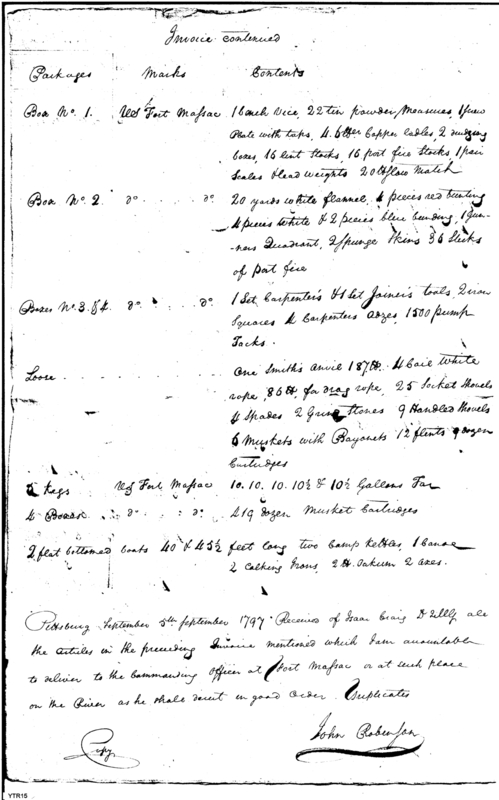 Invoice continued
Packages Marks Contents
Box No. 1. US Fort Massac 1 bench Vice, 22 tin powder Measures, 1 screw
Plate with taps, 4. 6 tter Copper ladles, 2 dredging
boxes, 16 lint Stocks, 16 port fire Stocks, 1 pair
Scales & lead weights 20 tt slow Match
Box No. 2 do do 20 yards white flannel, 4 pieces red bunting
4 pieces white & 2 pieces blue bunting, 1 gun-
ners Quadrant, 2 spunge Skins 36 Sticks
of port fire
Boxes No. 3. & 4. do do 1 Set Carpenter's & 1 Set Joiner's tools, 2 iron
Squares 4 Carpenters adzes, 1500 pump
Tacks.
Loose One Smith's Anvil 187 tt. 4 Coil White
rope, 86 tt for drag rope, 25 Socket Shovels
4 Spades 2 Grind Stones 9 Handled Shovels
6 Muskets with Bayonets 12 flints 9 dozen
Cartridges
5 Kegs US Fort Massac 10. 10. 10. 10½ & 10½ Gallons Tar
4 Boxes do do 419 dozen Musket Cartridges
2 flat bottomed boats 40 & 45½ feet long two Camp Kettles, 1 Canoe
2 Calking Irons, 2 tt. Oakum 2 axes.
Pittsburg September 5th September 1797 Received of Isaac Craig all
the articles in the preceding Invoice mentioned which I am accountable
to deliver to the Commanding Officer at Fort Massac or at such place
on the River as he shall direct in good Order. Duplicates
John Robinson
Copy
YTR15